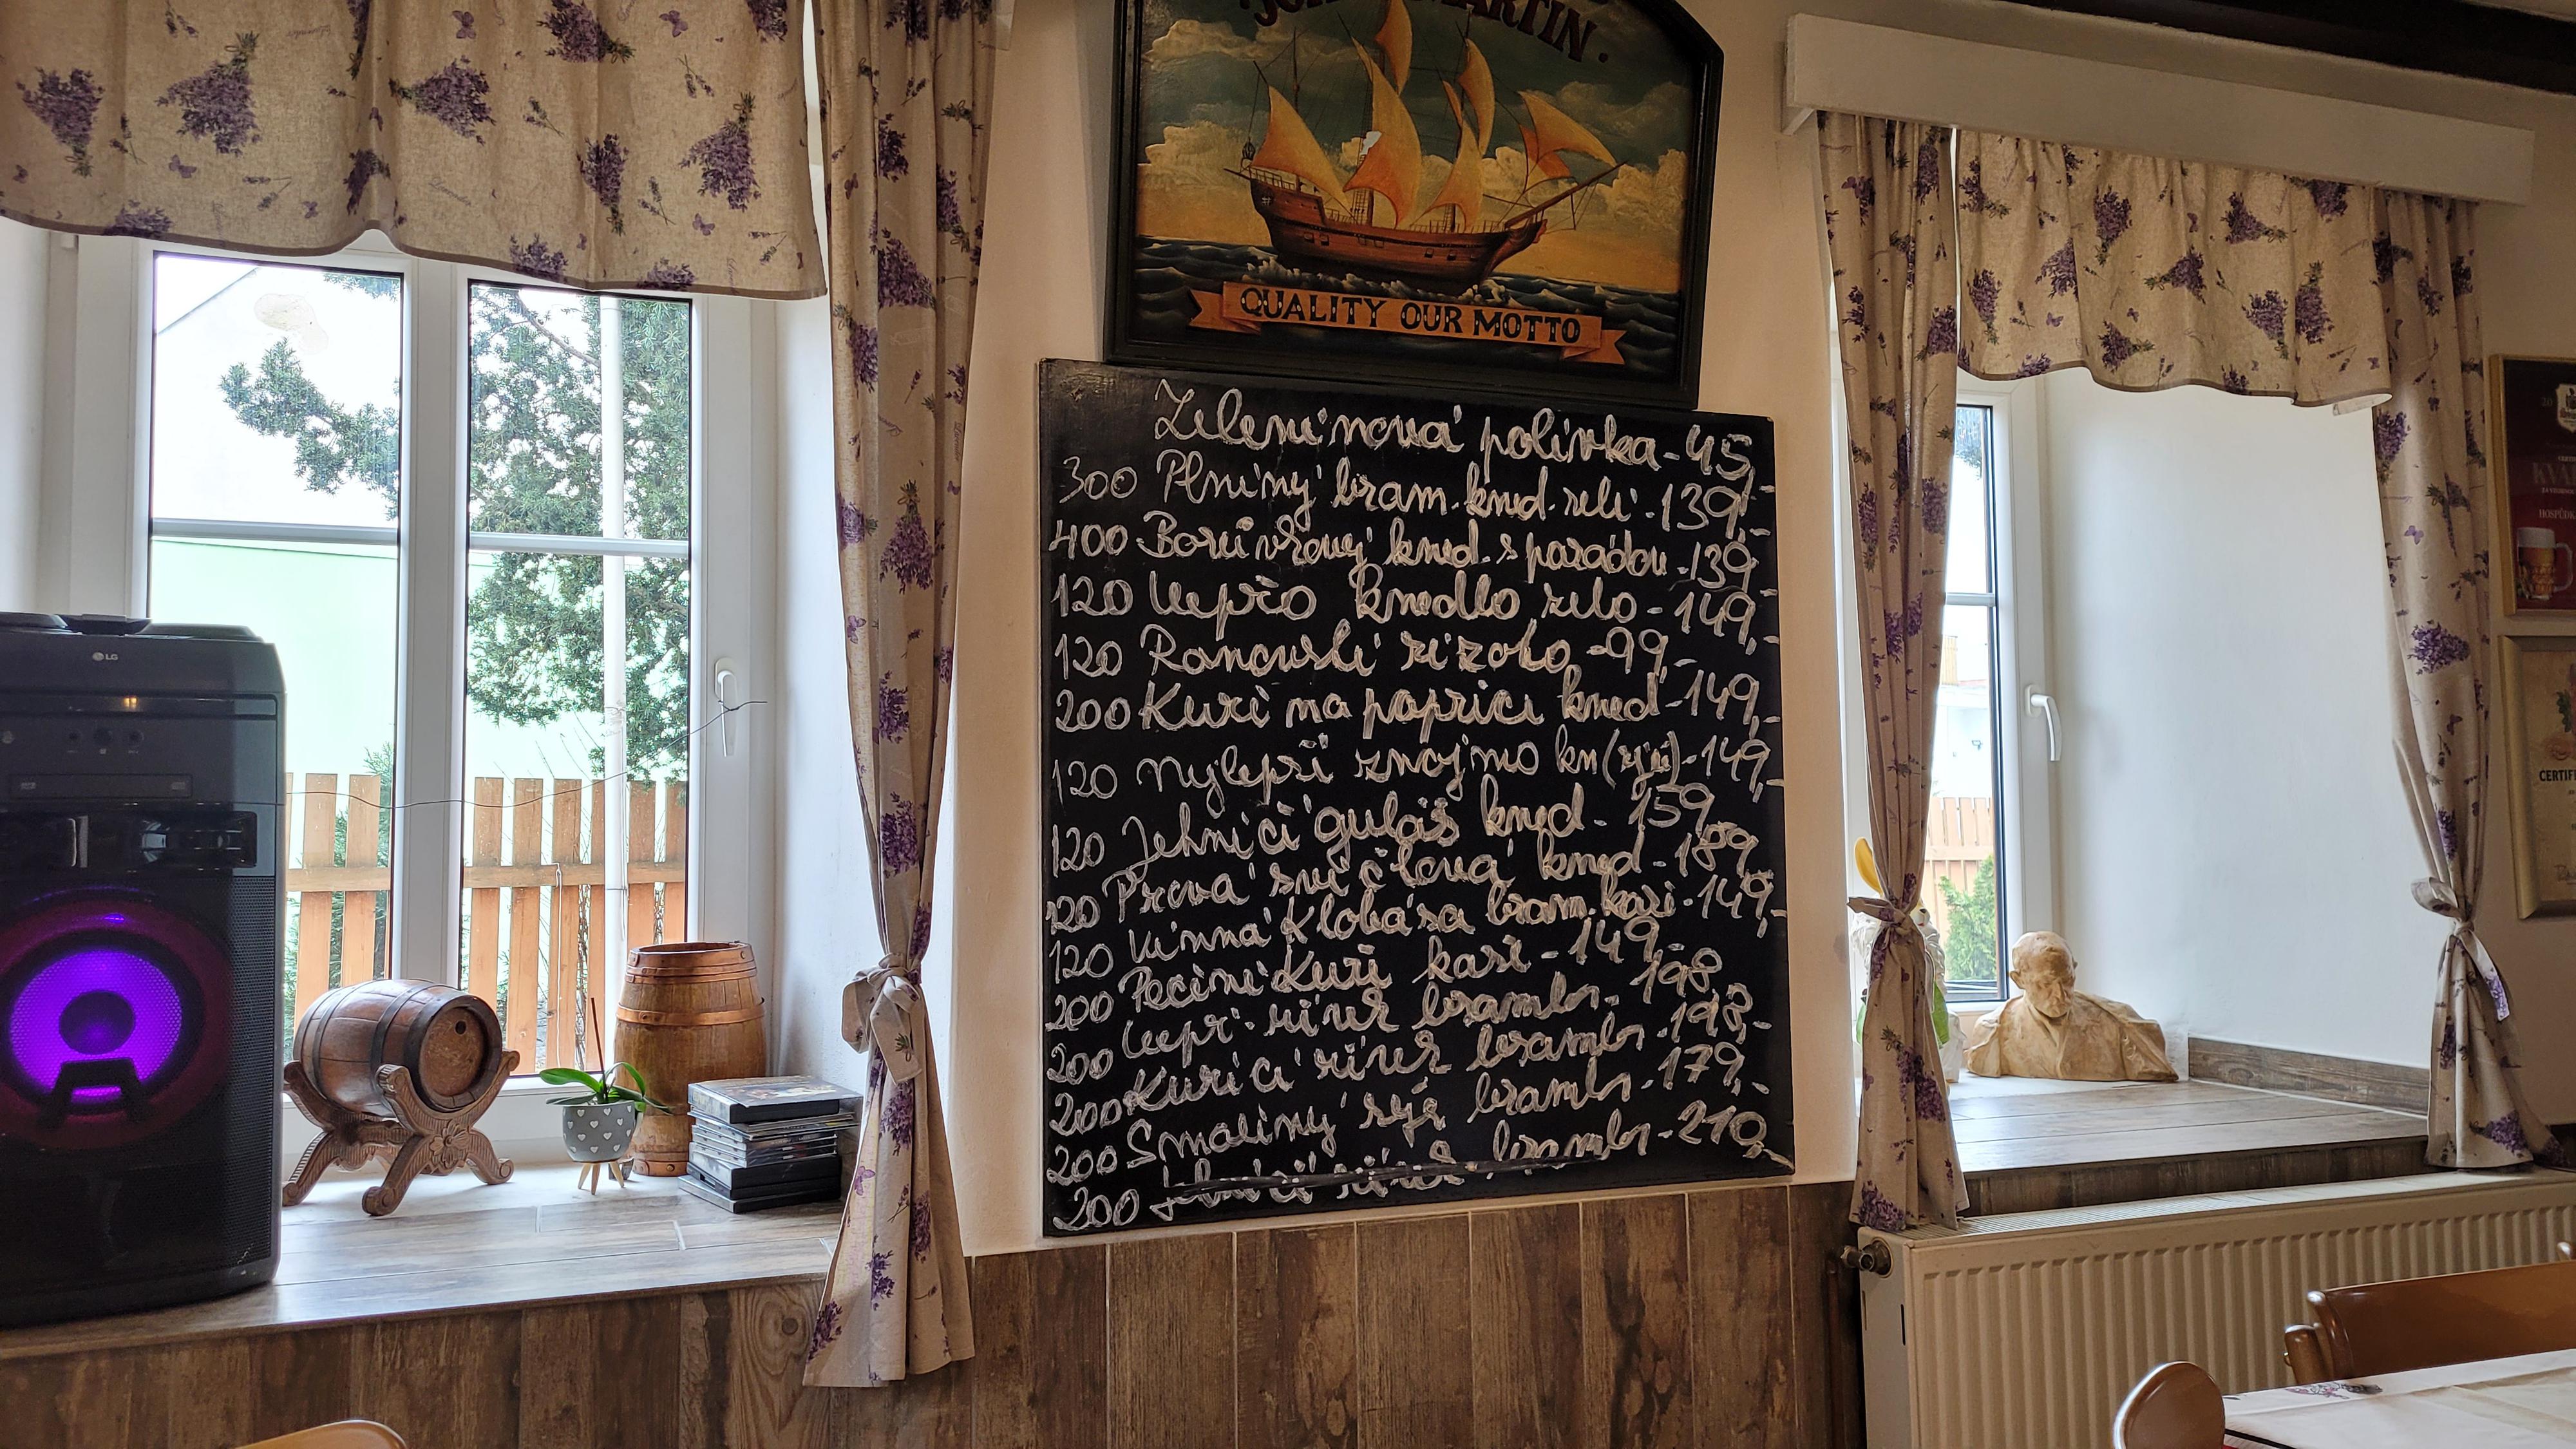 JOHN MARTIN.
QUALITY OUR MOTTO
Zeleninová polívka - 45,-
300 Plněný bram. kned. zelí - 139,-
400 Borůvkový knedl. s parádou - 139,-
120 Vepřo knedlo zelo - 149,-
120 Ranowski rizoto - 99,-
200 Kuře na paprice kned - 149,-
120 Nejlepší znojmo kn (rýže) - 149,-
120 Jehněčí guláš kned. - 159
120 Pravá svíčková knedl - 189,-
120 Vinná Klobása bram. kaši - 149,-
200 Pečené Kuře kaše - 149,-
200 Vepř. řízek brambor - 198,-
200 Kuřecí řízek brambor - 198,-
200 Smažený sýr brambor - 179,-
200 Jehněčí řízek brambor - 210,-
LG
HOSPŮDK
CERTIFI